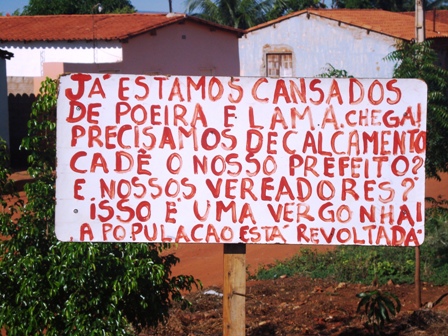 JÁ ESTAMOS CANSADOS
DE POEIRA E LAMA.CHEGA!
PRECISAMOS DE CALCAMENTO
CADÊ O NOSSO PREFEITO?
E NOSSOS VEREADORES?
ISSO É UMA VERGONHA!
A POPULACAO ESTÁ REVOLTADA.